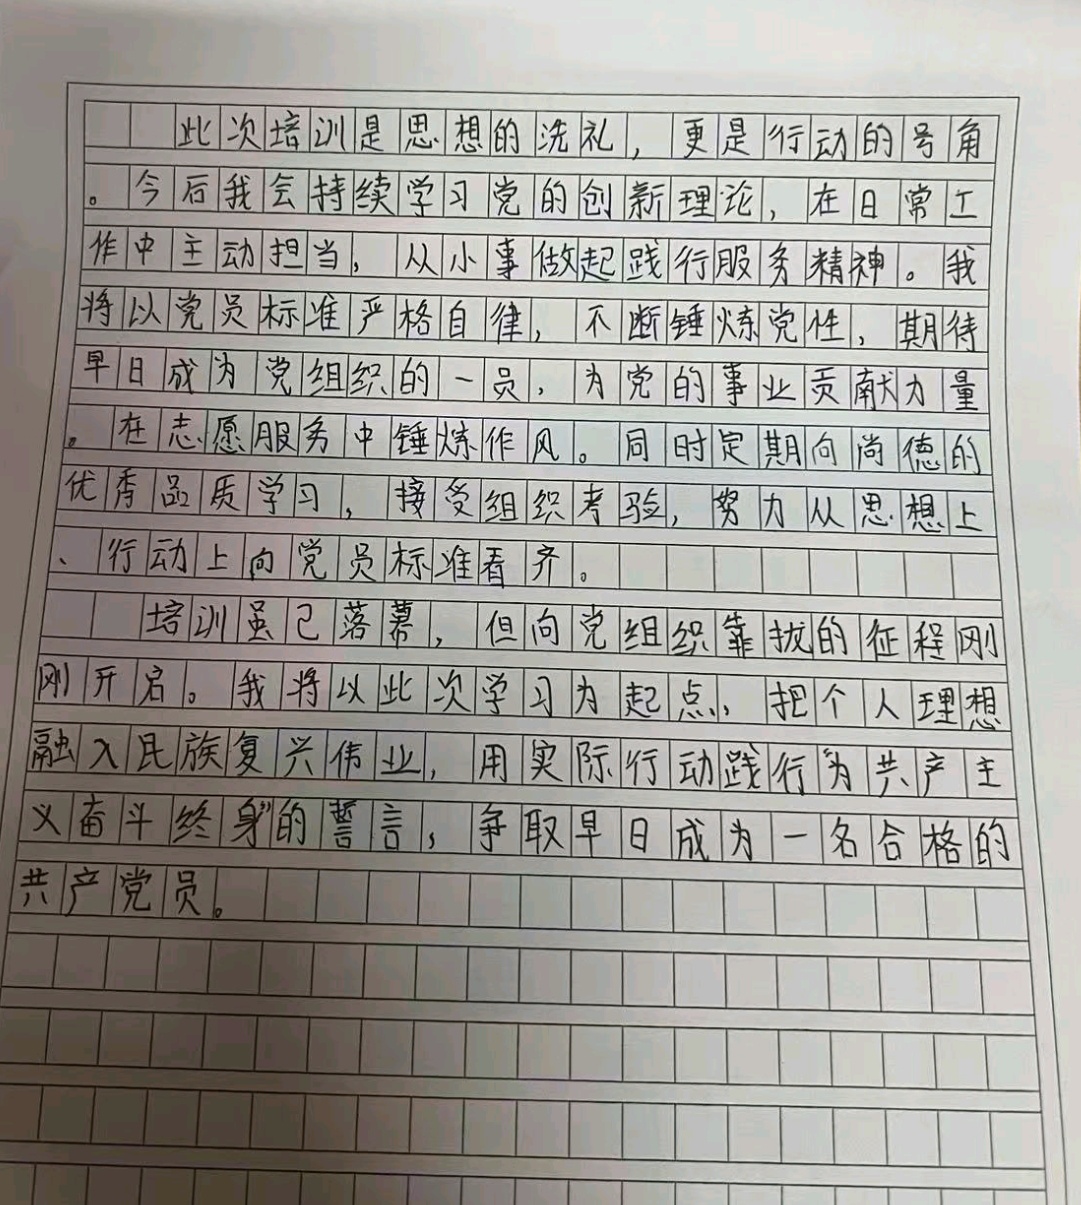 此次培训是思想的洗礼，更是行动的号角
。今后我会持续学习党的创新理论，在日常工
作中主动担当，从小事做起践行服务精神。我
将以党员标准严格自律，不断锤炼党性，期待
早日成为党组织的一员，为党的事业贡献力量
。在志愿服务中锤炼作风。同时定期向尚德的
优秀品质学习，接受组织考验，努力从思想上
、行动上向党员标准看齐。
培训虽已落幕，但向党组织靠拢的征程刚
刚开启。我将以此次学习为起点，把个人理想
融入民族复兴伟业，用实际行动践行“为共产主
义奋斗终身”的誓言，争取早日成为一名合格的
共产党员。